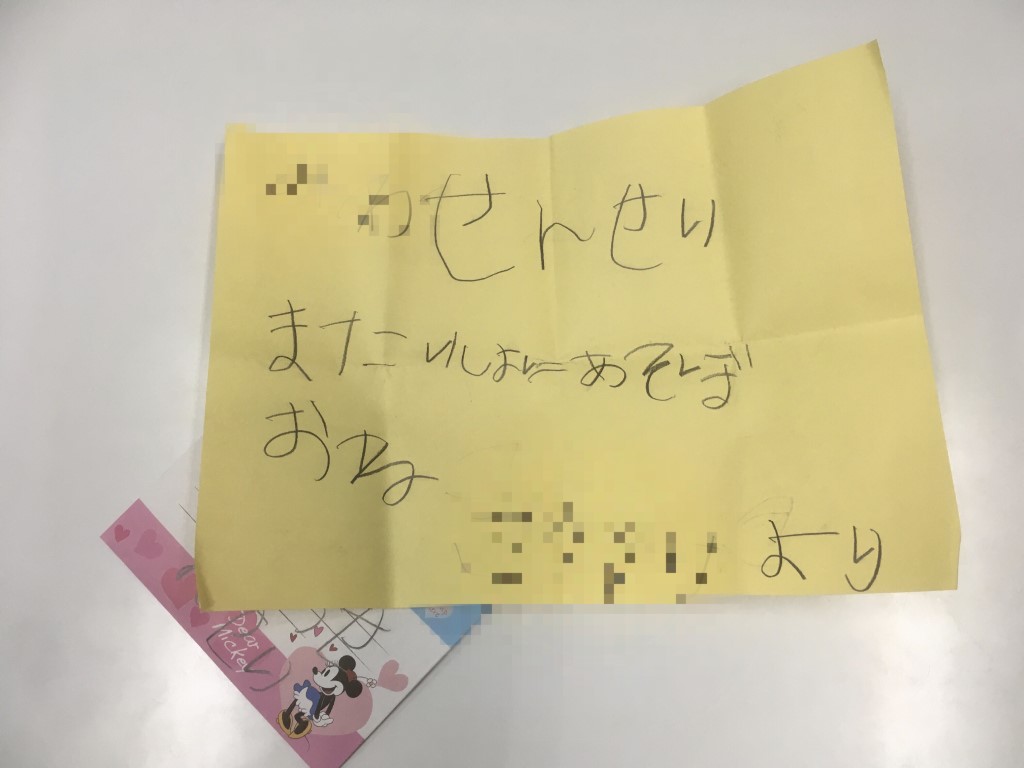 せんせい
またいっしょにあそぼ
おね
より
Dear
Mickey